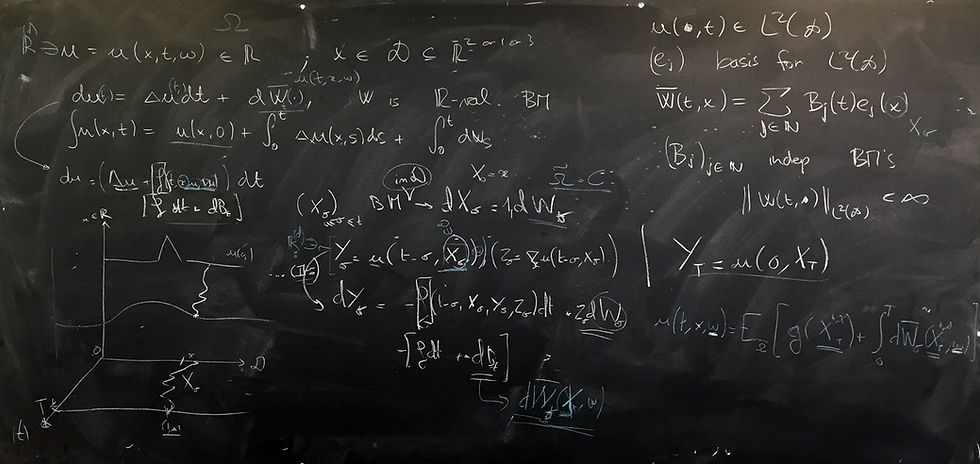 Ω
ℝ ∋ u = u(x,t,ω) ∈ ℝ , x ∈ D ⊆ ℝ^2 or 1 or 3
u(t,x,ω)
du(t) = Δu(t)dt + dW̄(t), W is ℝ-val. BM
∫u(x,t) = u(x,0) + ∫₀ᵗ Δu(x,s)ds + ∫₀ᵗ dWs
du = (Δu
dt
[f dt + dBt]
(Xσ) BM in D → dXσ = 1 dWσ
X₀ = x
Ω̃ = C
u ∈ ℝ
Yσ = u(t-σ, Xσ) (Zσ = ∇u(t-σ, Xσ))
dYσ = -f(t-σ, Xσ, Yσ, Zσ)dt + Zσ dWσ
-[f dt + dBt]
dW̄(X, ω)
O
D
Xσ
T
(t)
u(•,t) ∈ L²(D)
(ej) basis for L²(D)
W̄(t,x) = Σ j∈ℕ Bj(t)ej(x)
Xσ
(Bj)j∈ℕ indep BM's
‖W(t,•)‖L²(D) < ∞
YT = u(0,XT)
u(t,x,ω) = EΩ̃ [g(XT) + ∫₀ᵀ dW̄σ(Xσ, ω)